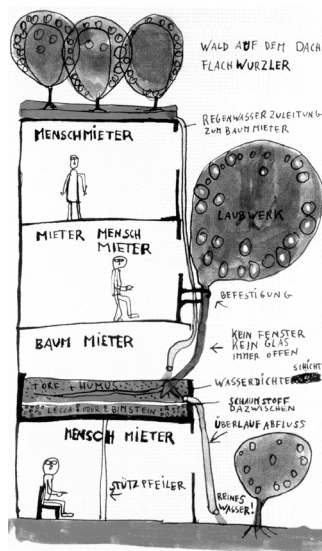 WALD AUF DEM DACH
FLACHWURZLER
REGENWASSERZULEITUNG
ZUM BAUM MIETER
MENSCHMIETER
LAUBWERK
MIETER MENSCH
MIETER
BEFESTIGUNG
BAUM MIETER
KEIN FENSTER
KEIN GLAS
IMMER OFFEN
SCHICHT
WASSERDICHTE
TORF + HUMUS
SCHAUMSTOFF
DAZWISCHEN
LECCA ODER BIMSTEIN
ÜBERLAUF ABFLUSS
MENSCH MIETER
STÜTZPFEILER
REINES
WASSER!